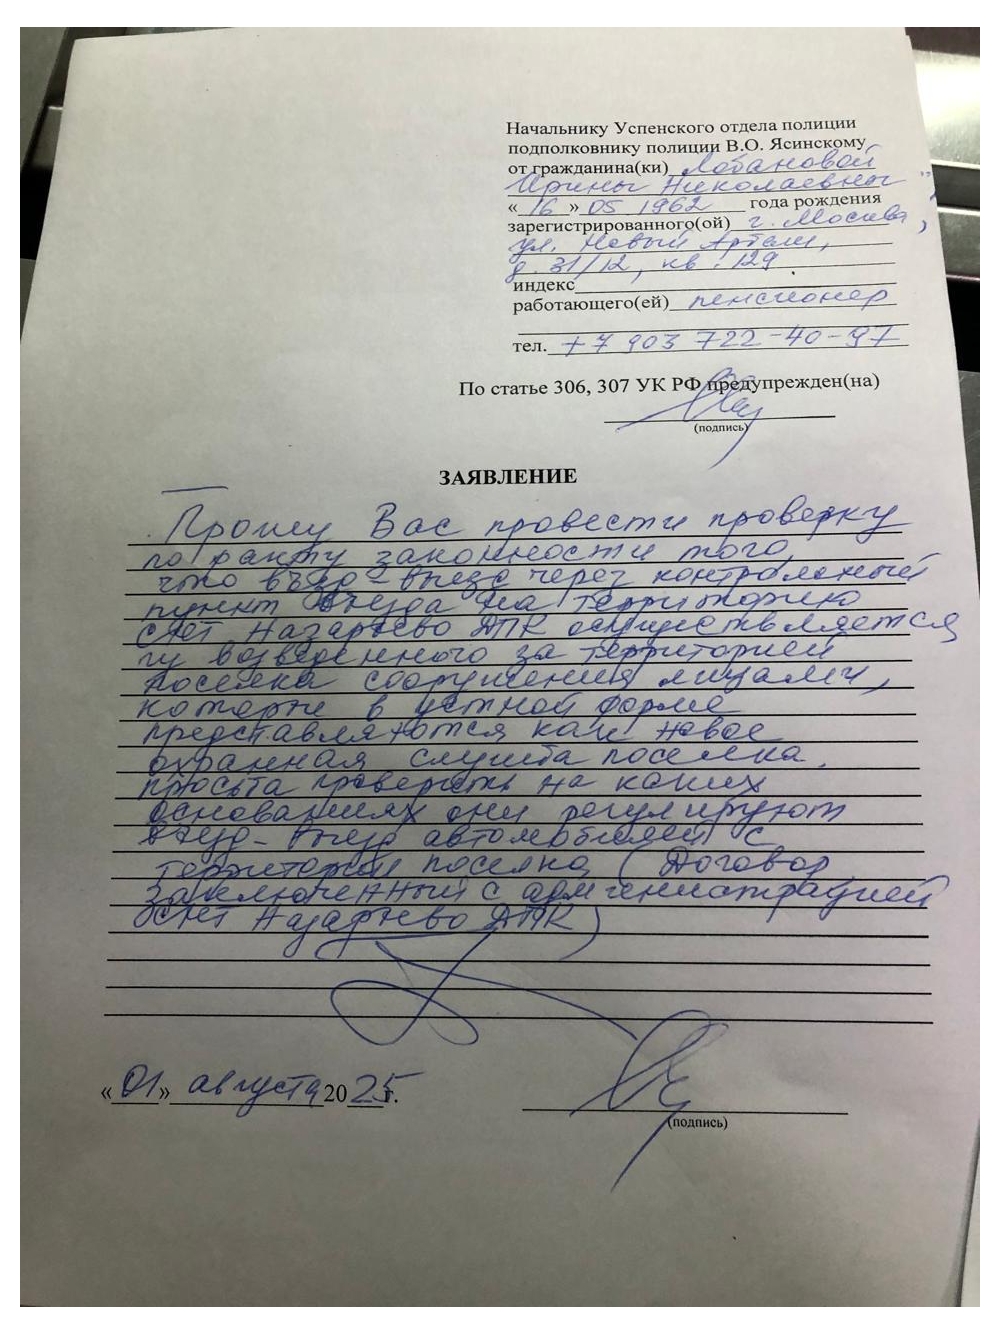 Начальнику Успенского отдела полиции
подполковнику полиции В.О. Ясинскому
от гражданина(ки) Лобановой
Ирины Николаевны
« 16 » 05 1962 года рождения
зарегистрированного(ой) г. Москва,
ул. Новый Арбат,
д. 31/12, кв. 129
индекс
работающего(ей) пенсионер
тел. +7 903 722-40-97
По статье 306, 307 УК РФ предупрежден(на)
(подпись)
ЗАЯВЛЕНИЕ
Прошу Вас провести проверку
по факту законности того,
что въезд-выезд через контрольный
пункт въезда на территорию
СНТ Назарьево ДПК осуществляется
из возведенного за территорией
поселка сооружения лицами,
которые в устной форме
представляются как новое
охранная служба поселка.
просьба проверить на каких
основаниях они регулируют
въезд-выезд автомобилей с
территории поселка (Договор
заключенный с администрацией
СНТ Назарьево ДПК)
« 01 » августа 2025 г.
(подпись)